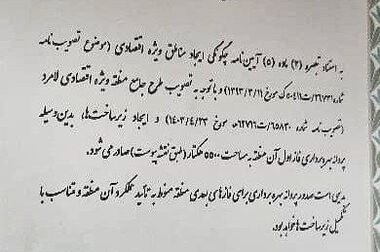 به استناد تبصره (۳) ماده (۵) آیین‌نامه چگونگی ایجاد مناطق ویژه اقتصادی (موضوع تصویب‌نامه
شماره مورخ ۱۳۹۴/۳/۱۱) و با توجه به تصویب طرح جامع منطقه ویژه اقتصادی لامرد
(تصویب‌نامه شماره مورخ ۱۴۰۳/۴/۲۳) و ایجاد زیرساخت‌ها، بدین‌وسیله
پروانه بهره‌برداری فاز اول آن منطقه به مساحت ۵۵۰۰ هکتار (طبق نقشه پیوست) صادر می‌شود.
بدیهی است صدور پروانه بهره‌برداری برای فازهای بعدی منطقه منوط به تأیید عملکرد آن منطقه و متناسب با
تکمیل زیرساخت‌ها خواهد بود.